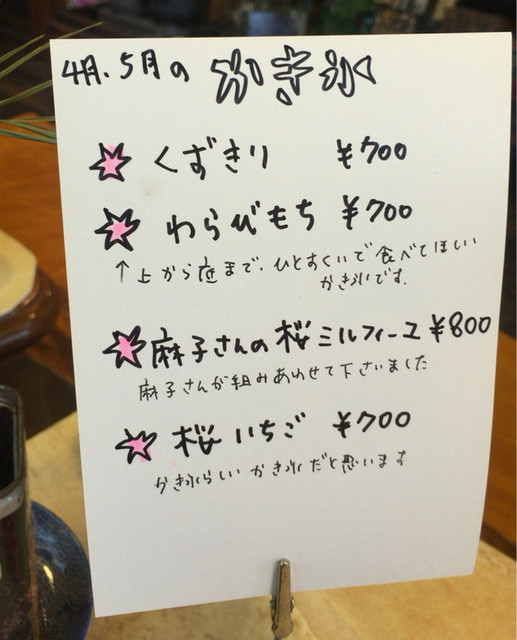 4月、5月の かき氷
くずきり ¥700
わらびもち ¥700
↑上から底まで、ひとすくいで食べてほしい
かき氷です。
麻子さんの桜ミルフィーユ ¥800
麻子さんが組みあわせて下さいました
桜いちご ¥700
かき氷らしい かき氷だと思います